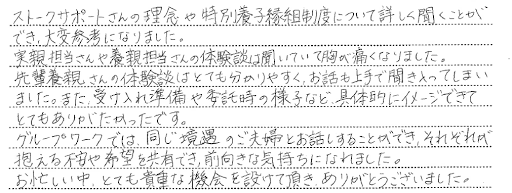 ストークサポートさんの理念や特別養子縁組制度について詳しく聞くことが
でき、大変参考になりました。
実親担当さんや養親担当さんの体験談は聞いていて胸が痛くなりました。
先輩養親さんの体験談はとても分かりやすく、お話も上手で聞き入ってしまい
ました。また、受け入れ準備や委託時の様子など、具体的にイメージできて
とてもありがたかったです。
グループワークでは、同じ境遇のご夫婦とお話しすることができ、それぞれが
抱える不安や希望を共有でき、前向きな気持ちになれました。
お忙しい中、とても貴重な機会を設けて頂き、ありがとうございました。